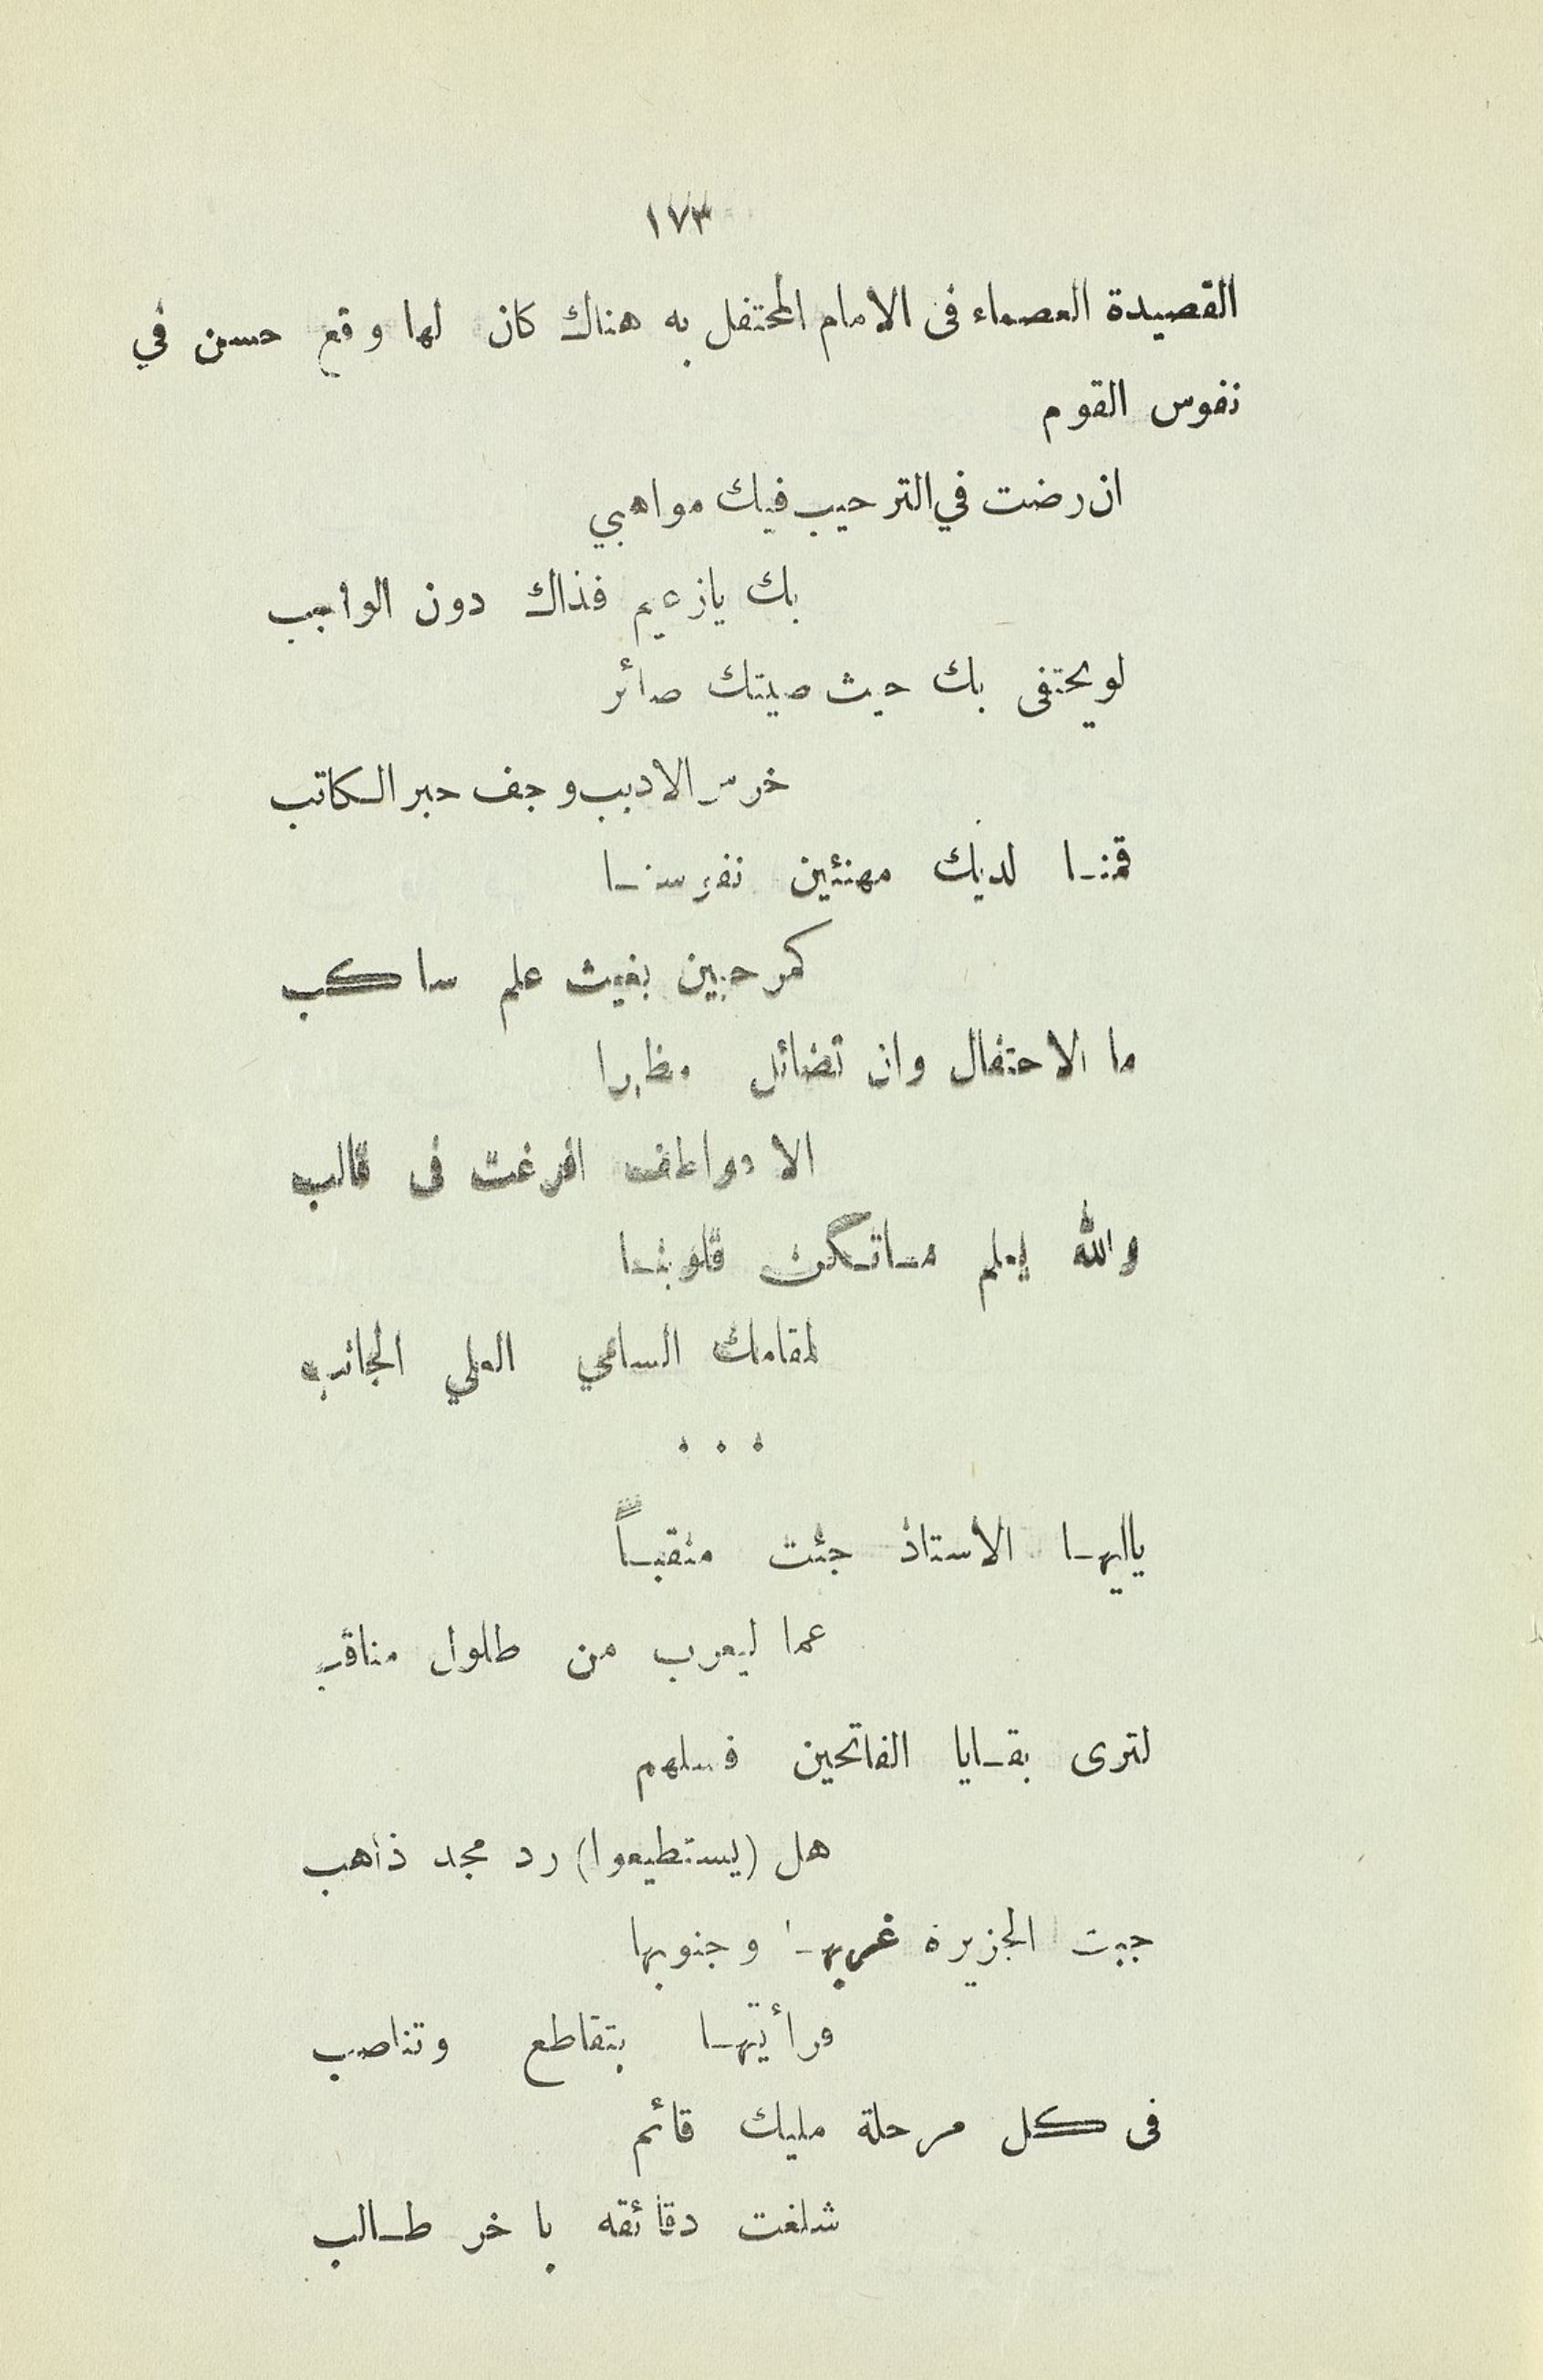 ١٧٣
القصيدة العصماء فى الامام المحتفل به هناك كان لها وقع حسن في
نفوس القوم
ان رضت في الترحيب فيك مواهبي
بك يازعيم فذاك دون الواجب
لو يحتفى بك حيث صيتك صائر
خرس الاديب وجف حبر الكاتب
قمنا لديك مهنئين نفوسنا
كمرحبين بغيث علم ساكب
ما الاحتفال وان تضائل مظهرا
الا عواطف افرغت فى قالب
والله يعلم ماتكن قلوبنا
لمقامك السامي العلي الجانب
...
ياايها الاستاذ جئت منقباً
عما ليعرب من طلول مناقب
لترى بقايا الفاتحين فسلهم
هل (يستطيعوا) رد مجد ذاهب
جبت الجزيرة غربها وجنوبها
فرأيتها بتقاطع وتناصب
فى كل مرحلة مليك قائم
شلغت دقائقه باخر طالب